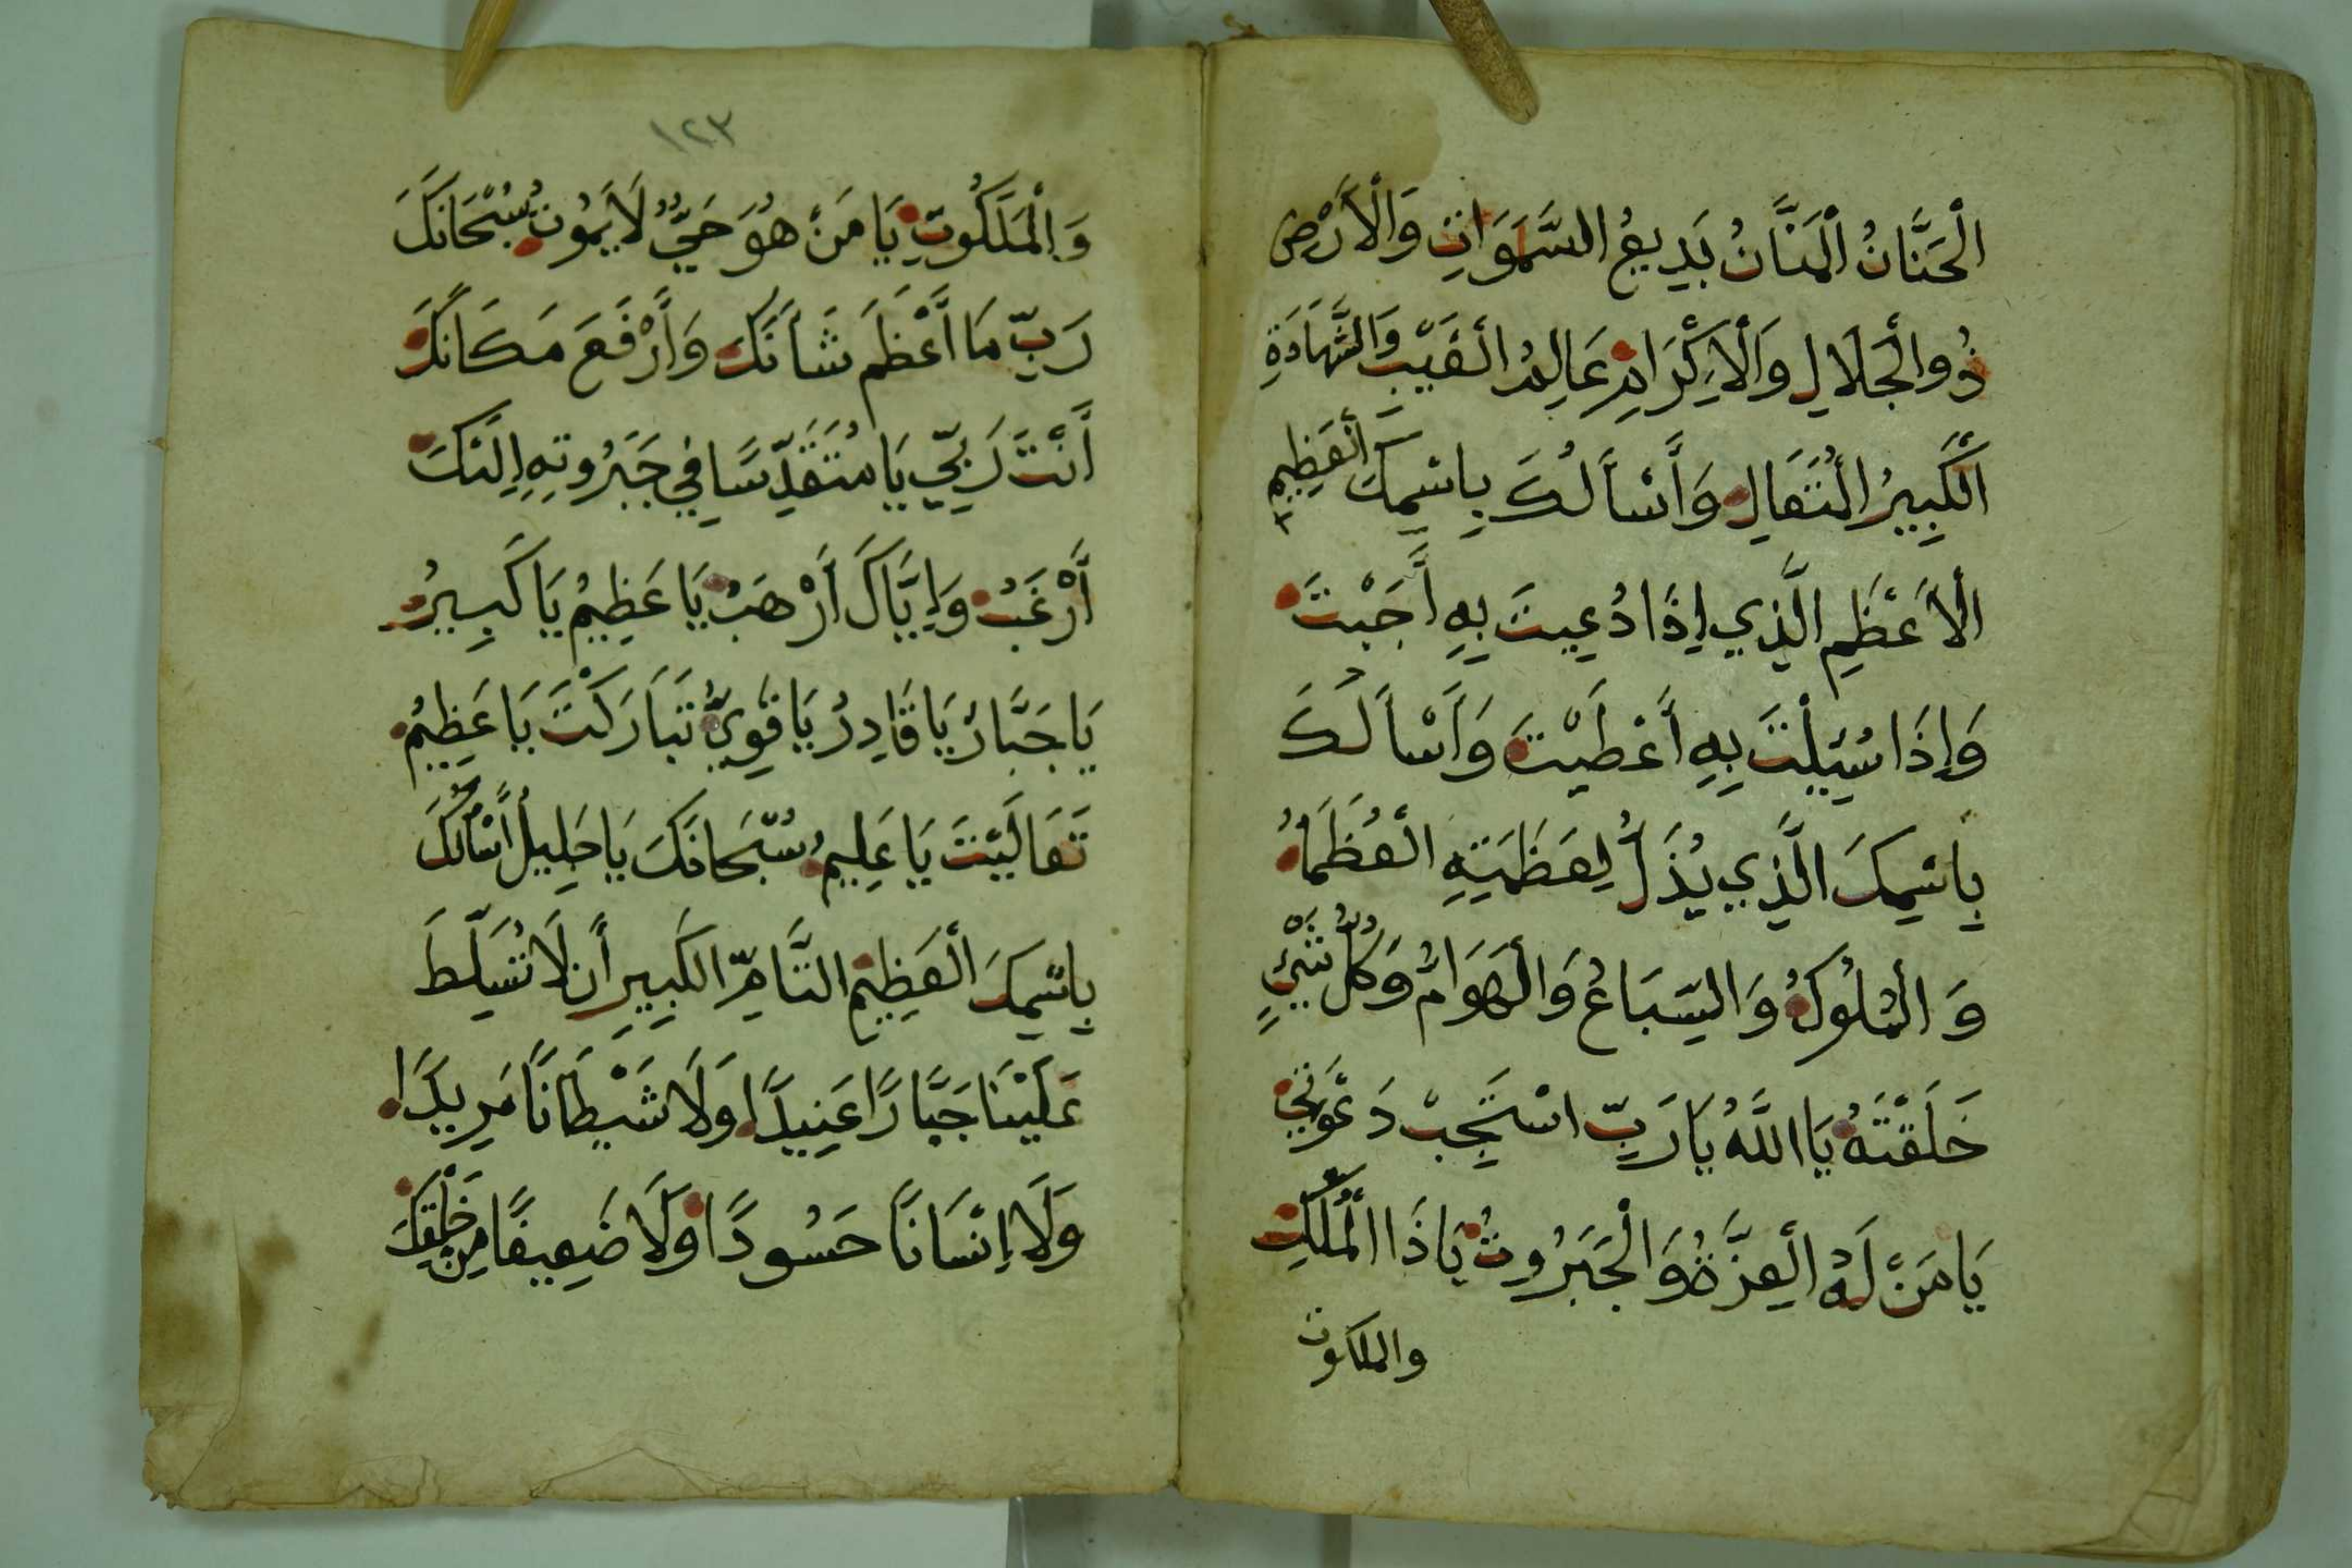 الْحَنَّانُ الْمَنَّانُ بَدِيعُ السَّمَوَاتِ وَالْأَرْضِ
ذُو الْجَلَالِ وَالْإِكْرَامِ عَالِمُ الْغَيْبِ وَالشَّهَادَةِ
الْكَبِيرُ الْمُتَعَالِ وَأَسْأَلُكَ بِاسْمِكَ الْعَظِيمِ
الْأَعْظَمِ الَّذِي إِذَا دُعِيتَ بِهِ أَجَبْتَ
وَإِذَا سُئِلْتَ بِهِ أَعْطَيْتَ وَأَسْأَلُكَ
بِاسْمِكَ الَّذِي يُذَلُّ لِعَظَمَتِهِ الْعُظَمَاءُ
وَالْمُلُوكُ وَالسِّبَاعُ وَالْهَوَامُّ وَكُلُّ شَيْءٍ
خَلَقْتَهُ يَا اللَّهُ يَا رَبِّ اسْتَجِبْ دَعْوَتِي
يَا مَنْ لَهُ الْعِزَّةُ وَالْجَبَرُوتُ يَا ذَا الْمُلْكِ
والملكوت
١٢٣
وَالْمَلَكُوتِ يَا مَنْ هُوَ حَيٌّ لَا يَمُوتُ سُبْحَانَكَ
رَبِّ مَا أَعْظَمَ شَأْنَكَ وَأَرْفَعَ مَكَانَكَ
أَنْتَ رَبِّي يَا مُتَقَدِّسًا فِي جَبَرُوتِهِ إِلَيْكَ
أَرْغَبُ وَإِيَّاكَ أَرْهَبُ يَا عَظِيمُ يَا كَبِيرُ
يَا جَبَّارُ يَا قَادِرُ يَا قَوِيُّ تَبَارَكْتَ يَا عَظِيمُ
تَعَالَيْتَ يَا عَلِيمُ سُبْحَانَكَ يَا جَلِيلُ أَسْأَلُكَ
بِاسْمِكَ الْعَظِيمِ التَّامِّ الْكَبِيرِ أَنْ لَا تُسَلِّطَ
عَلَيْنَا جَبَّارًا عَنِيدًا وَلَا شَيْطَانًا مَرِيدًا
وَلَا إِنْسَانًا حَسُودًا وَلَا ضَعِيفًا مِنْ خَلْقِكَ